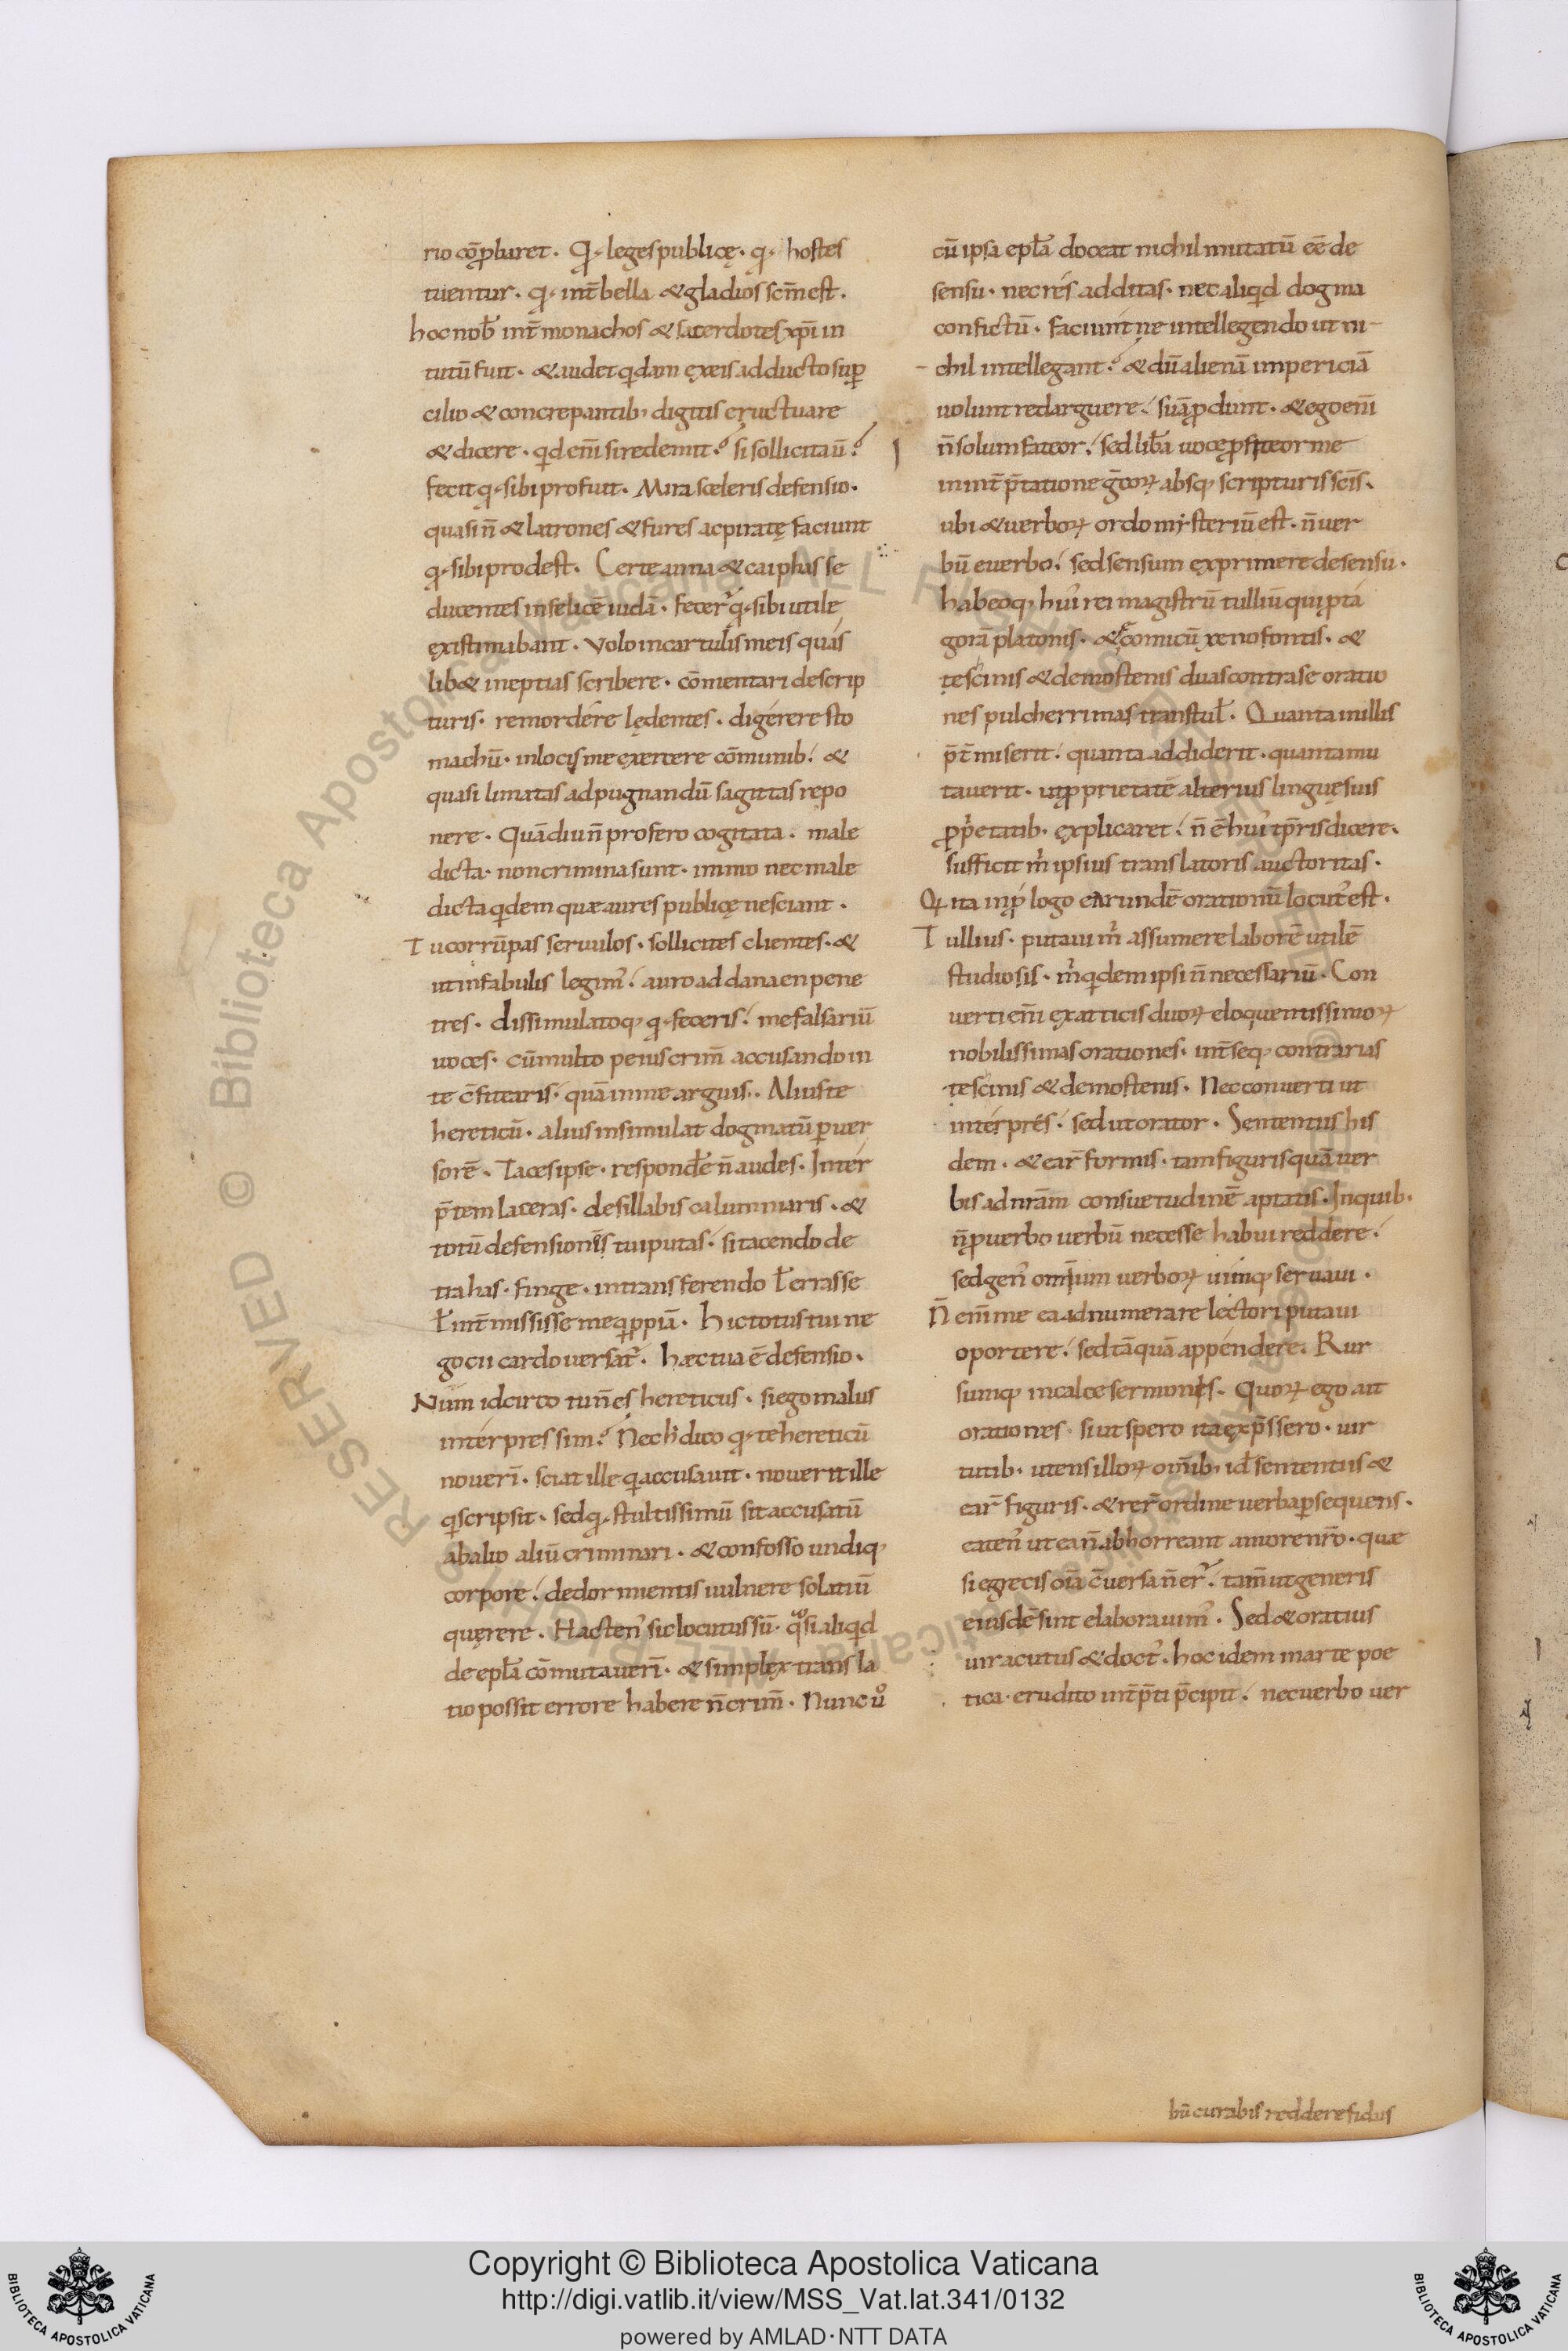 rio cōp̄baret. Qđ leges publicę. qđ hostes
tuentur. qđ int̄ bella & gladios sc̄m est.
hoc nob̄ int̄ monachos & sacerdotes xp̄i in
tutū fuit. & audet qdam ęx eis adducto sup̄
cilio & concrepantib; digitis eructuare
& dicere. qd eni̅ si redemit? si sollicitau̅?
fecit qđ sibi profuit. Mira sceleris defensio.
quasi n̄ & latrones & fures ac piratę faciunt
qđ sibi prodest. Certe anna & caiphas se
ducentes infelicē iudā. fecer̄ qđ sibi utile
ęxistimabant. Volo in cartulis meis quas
lib& ineptias scribere. cōmentari de scrip
turis. remordere lędentes. digerere sto
machū. in locis me ęxercere cōmunib; &
quasi limatas ad pugnandū sagittas repo
nere. Quādiu n̄ profero cogitata. male
dicta. non crimina sunt. immo nec male
dicta qdem quæ aures publicę nesciant.
Tu corrūpas seruulos. sollicites clientes. &
ut in fabulis legim'. auro ad danaen pene
tres. dissimulatoq; qđ feceris. me falsariū
uoces. cū multo peius crim̄ accusando in
te c̄fitearis. quā in me arguis. Alius te
hereticū. alius insimulat dogmatū puer
sorē. Taces ipse. respondē n̄ audes. Inter
p̄tem laceras. de sillabis calumniaris. &
totū defensionis tui putas. si tacendo de
trahas. Finge. in transferendo ł errasse
ł int̄misisse me qppiū. Hic totus tui ne
gocii cardo uersat̄. hæc tua ē defensio.
Num idcirco tu n̄ es hereticus. si ego malus
interpres sim? Nec h' dico qđ te hereticū
noueri̅. sciat ille qi accusauit. nouerit ille
qi scripsit. sed qđ stultissimū sit accusatū
ab alio aliū criminari. & confosso undiq;
corpore. de dormientis uulnere solatiū
quęrere. Hacten' sic locutus sū. qᵃsi aliqid
de epl̄a cōmutaueri̅. & simplęx transla
tio possit errore habere n̄ crim̄. Nunc uº
cū ipsa epl̄a doceat nichil mutatū eē de
sensu. nec res additas. nec aliqid dogma
confictū. faciunt ne intellegendo ut ni-
chil intellegant? & dū alienā impericiā
uolunt redarguere. suā p̄dunt. & ego eni̅
n̄ solum fateor. sed liƀa uoce p̄fiteor me
in int̄p̄tatione gc̄oꝝ absq; scripturis sc̄is.
ubi & uerboꝝ ordo mysteriū est. n̄ uer
bū e uerbo. sed sensum ęxprimere de sensu.
habeoq; hui' rei magistrū tulliū qui pta
gorā platonis. & ęcomicū xenofontis. &
tescinis & demostenis duas contra se oratio
nes pulcherrimas transtul̄. Quanta in illis
p̄t̄miserit. quanta addiderit. quanta mu
tauerit. ut p̄prietatē alterius linguę suis
p̄p'etatib. ęxplicaret. n̄ ē hui' tp̄ris dicere.
sufficit m̄ ipsius translatoris auctoritas.
Qi ita in p̄logo earundē orationū locut' est.
Tullius. putaui m̄ assumere laborē utilē
studiosis. m̄ qdem ipsi n̄ necessariū. Con
uerti eni̅ ęx atticis duoꝝ eloquentissimoꝝ
nobilissimas orationes. int̄ seq; contrarias
tescinis & demostenis. Nec conuerti ut
interpres. sed ut orator. Sententiis his
dem. & eaꝝ formis. tam figuris quā uer
bis ad nr̄am consuetudinē aptatis. In quib.
n̄ p̄ uerbo uerbū necesse habui reddere.
sed gen' omnium uerboꝝ uimq; seruaui.
N̄ eni̅ me ea adnumerare lectori putaui
oportere. sed tāquā appendere. Rur
sumq; in calce sermonis. Quoꝝ ego ait
orationes si ut spero ita ęxp̄ssero. uir
tutib. utens illoꝝ omib; id̄ sententiis &
eaꝝ figuris. & reꝝ ordine uerba psequens.
eaten' ut ea n̄ abhorreant a more nr̄o. quæ
si e grecis oīa c̄uersa n̄ er̄. tam̄ ut generis
eiusdē sint elaborauim'. Sed & oratius
uir acutus & doct'. hoc idem in arte poe
tica erudito int̄p̄ti p̄cipit. nec uerbo uer
bū curabis reddere fidus
Copyright © Biblioteca Apostolica Vaticana
http://digi.vatlib.it/view/MSS_Vat.lat.341/0132
powered by AMLAD·NTT DATA
BIBLIOTECA APOSTOLICA VATICANA
BIBLIOTECA APOSTOLICA VATICANA